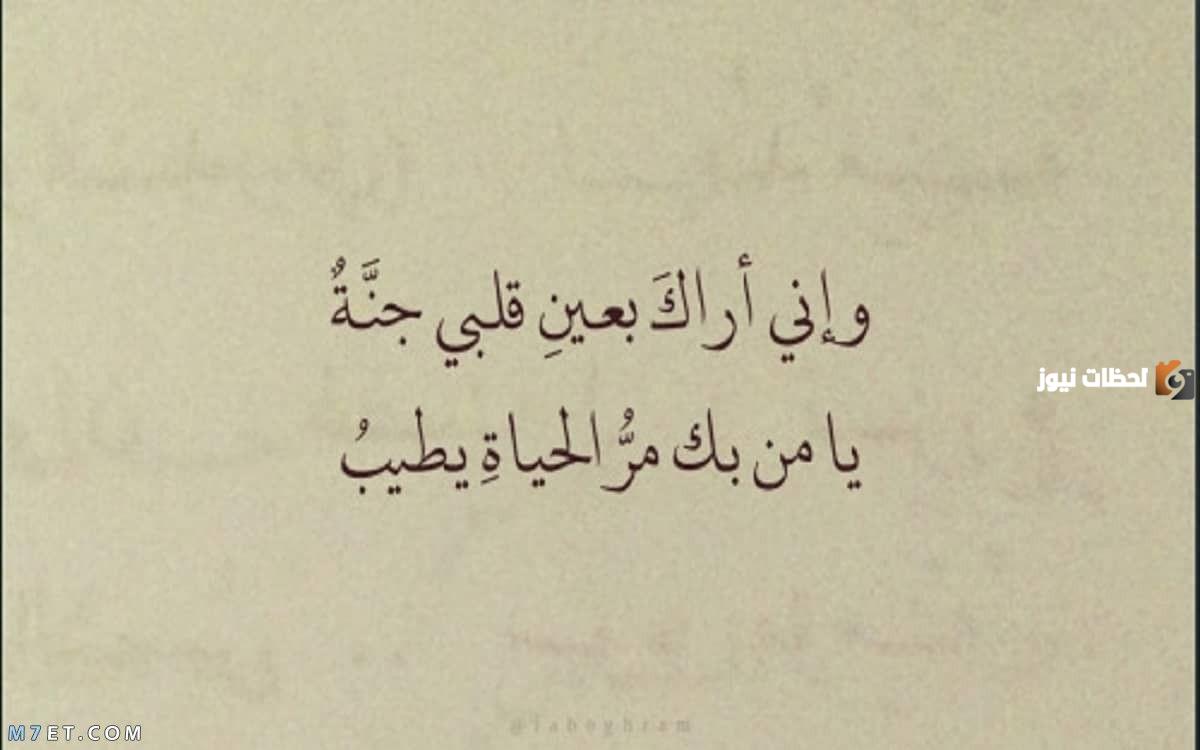 وإني أراكَ بعينِ قلبي جنَّةٌ
يا من بك مرُّ الحياةِ يطيبُ
لحظات نيوز
M7ET.COM